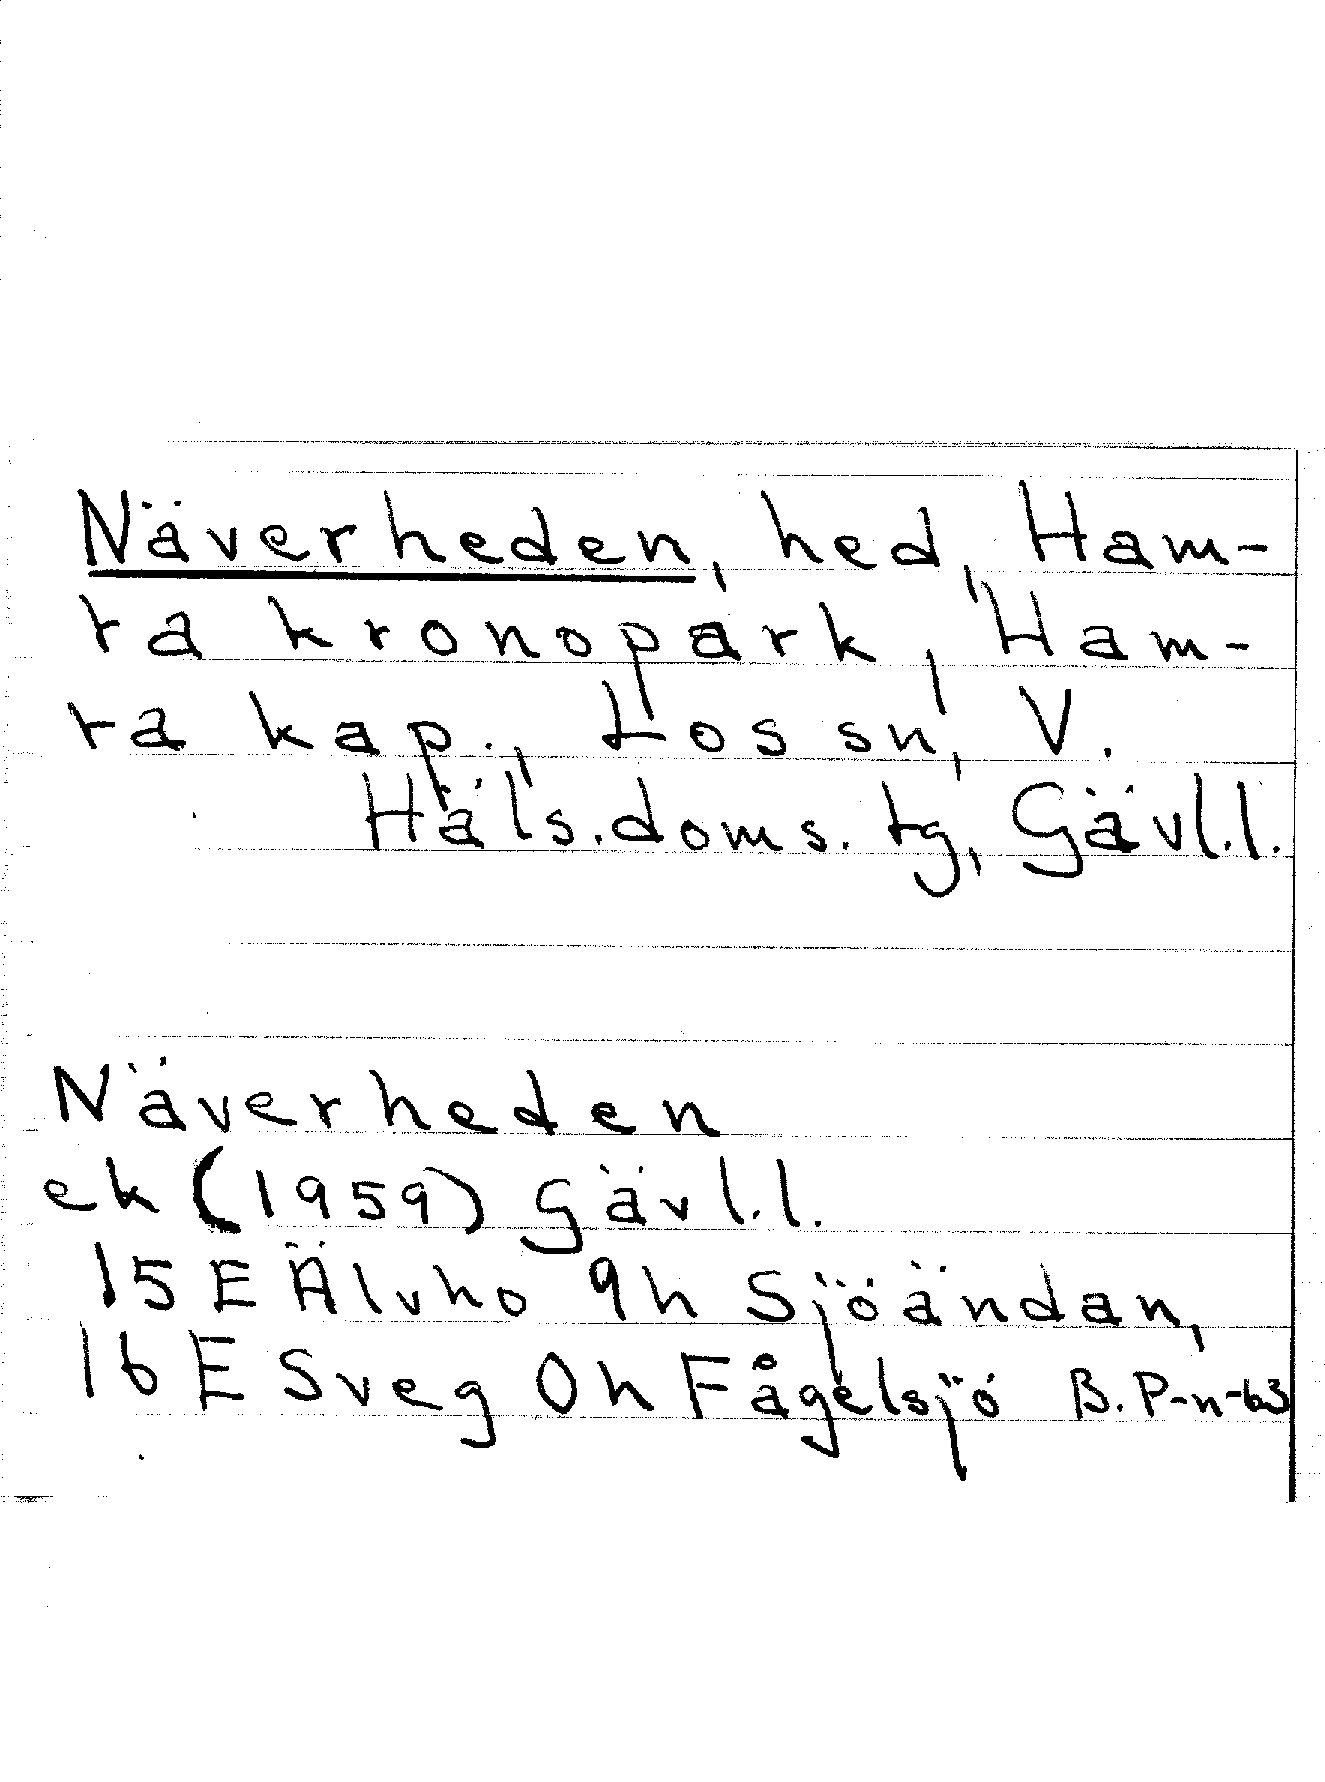 Näverheden, hed, Ham-
ra kronopark, Ham-
ra kap., Los sn, V.
Häls.doms.tg, Gävl.l.
Näverheden
ek (1959) Gävl.l.
15 E Älvho 9h Sjöändan,
16 E Sveg 0h Fågelsjö B.P-n-63